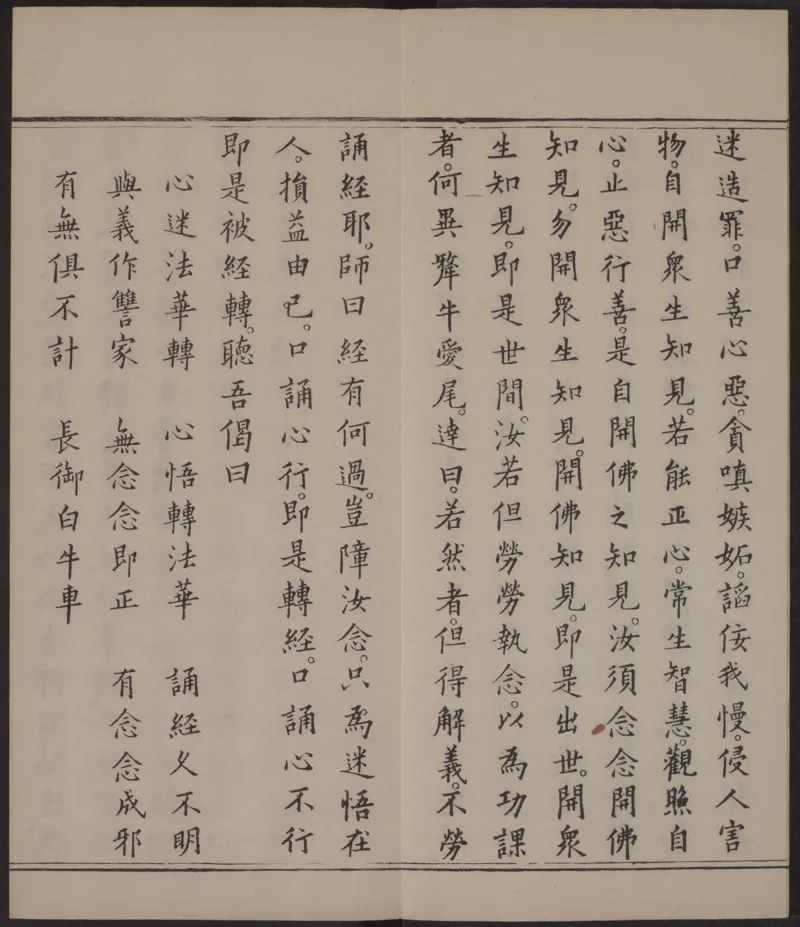 迷造罪。口善心惡。貪嗔嫉妬。謟佞我慢。侵人害
物。自開衆生知見。若能正心。常生智慧。觀照自
心。止惡行善。是自開佛之知見。汝須念念開佛
知見。勿開衆生知見。開佛知見。即是出世。開衆
生知見。即是世間。汝若但勞勞執念。以為功課
者。何異犛牛愛尾。達曰。若然者。但得解義。不勞
誦經耶。師曰經有何過。豈障汝念。只為迷悟在
人。損益由已。口誦心行。即是轉經。口誦心不行
即是被經轉。聽吾偈曰
心迷法華轉　心悟轉法華　誦經久不明
與義作讐家　無念念即正　有念念成邪
有無俱不計　長御白牛車